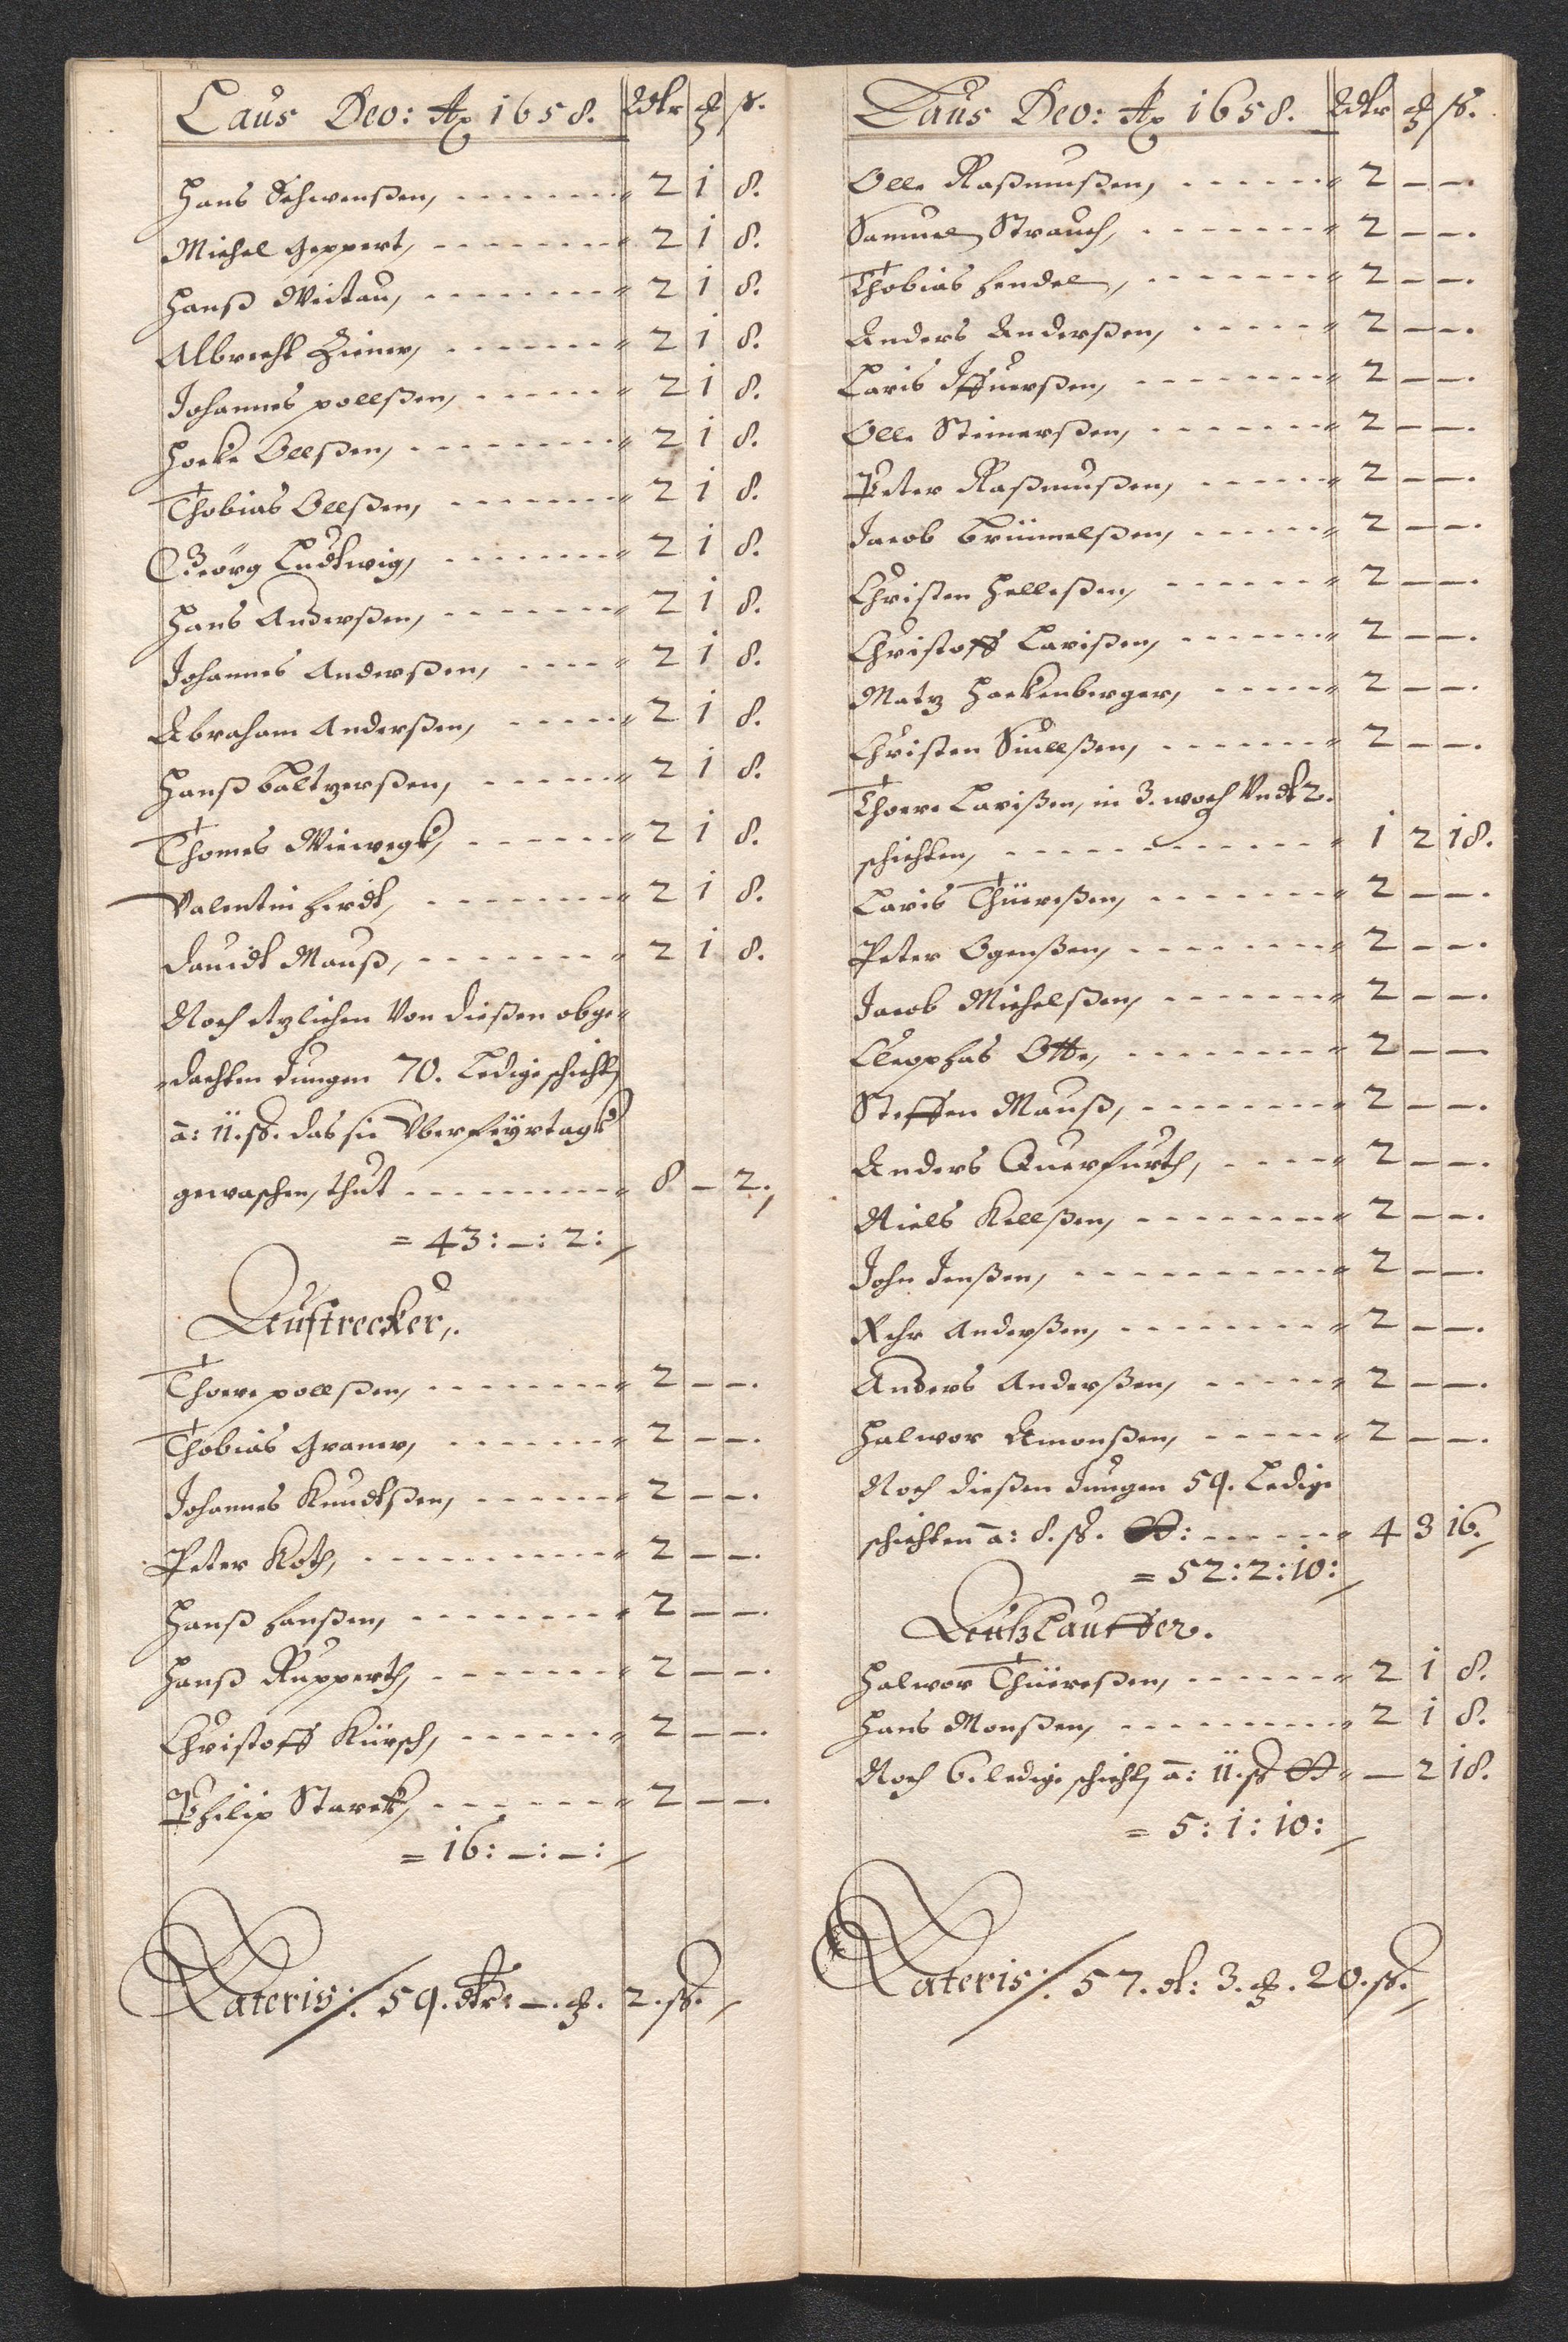 Laus Deo: Ao 1658. Rdlr ₰ ß.
Hans Schwenßen, 2 1 8.
Michel Geppert, 2 1 8.
Hanß Weitau, 2 1 8.
Albrecht Ziener, 2 1 8.
Johannes pollßen, 2 1 8.
Hocke Ollßen, 2 1 8.
Thobias Ollßen, 2 1 8.
Geörg Ludtwig, 2 1 8.
Hans Anderßen, 2 1 8.
Johannes Anderßen, 2 1 8.
Abraham Anderßen, 2 1 8.
Hanß baltzerßen, 2 1 8.
Thomes Wiewegk, 2 1 8.
Valentin 2 1 8.
Dauidt Mauß, 2 1 8.
Noch etzlichen Von dießen obge-
dachten Jungen 70. Ledige schicht,
a: 11. ß. das sie Vber feyrtagk
gewaschen, thut 8 — 2.
= 43: —: 2:
Deustrecker.
Thore pollßen, 2 — —.
Thobias Gramer, 2 — —.
Johannes Knudtßen, 2 — —.
Peter Koth, 2 — —.
Hanß hanßen, 2 — —.
Hanß Rupperth, 2 — —.
Christoff Kürsch, 2 — —.
Philip Starck, 2 — —.
= 16: —: —:
Lateris: 59. dlr: —. ₰. 2. ß.
Laus Deo: Ao 1658. Rdlr ₰ ß.
Olle Raßmußen, 2 — —.
Samuel Strauch, 2 — —.
Thobias hendel, 2 — —.
Anders Anderßen, 2 — —.
Laris Iffuerßen, 2 — —.
Olle Steinerßen, 2 — —.
Peter Raßmußen, 2 — —.
Jacob Brümmelßen, 2 — —.
Christen Helleßen, 2 — —.
Christoff Larißen, 2 — —.
Matz Hackenberger, 2 — —.
Christen Siullßen, 2 — —.
Thore Larißen, in 3. woch Undt 2.
schichten, 1 2 18.
Laris Thüreßen, 2 — —.
Peter Ogenßen, 2 — —.
Jacob Michelßen, 2 — —.
Cleophas Otte, 2 — —
Steffen Mauß, 2 — —.
Anders Querfurth, 2 — —.
Niels Kellßen, 2 — —.
John Jenßen, 2 — —.
Rehr Anderßen, 2 — —.
Anders Anderßen, 2 — —.
Halwor Amonßen, 2 — —.
Noch dießen Jungen 59. Ledige
schichten a: 8. ß. 4 3 16.
= 52: 2: 10:
Halwor Thüreßen, 2 1 8.
Hans Monßen, 2 1 8.
Noch 6. ledige schicht, a: 11. ß — 2 18.
= 5: 1: 10:
Lateris: 57. dl: 3. ₰. 20. ß.